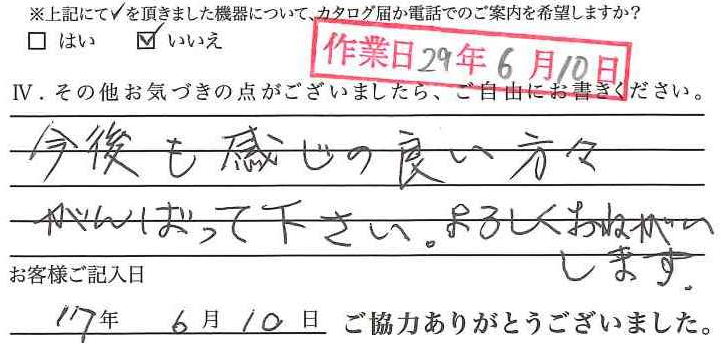 ※上記にて✓を頂きました機器について、カタログ届か電話でのご案内を希望しますか？
□ はい ☑ いいえ
作業日29年6月10日
Ⅳ．その他お気づきの点がございましたら、ご自由にお書きください。
今後も感じの良い方々
がんばって下さい。よろしくおねがい
します。
お客様ご記入日
17年 6月10日 ご協力ありがとうございました。